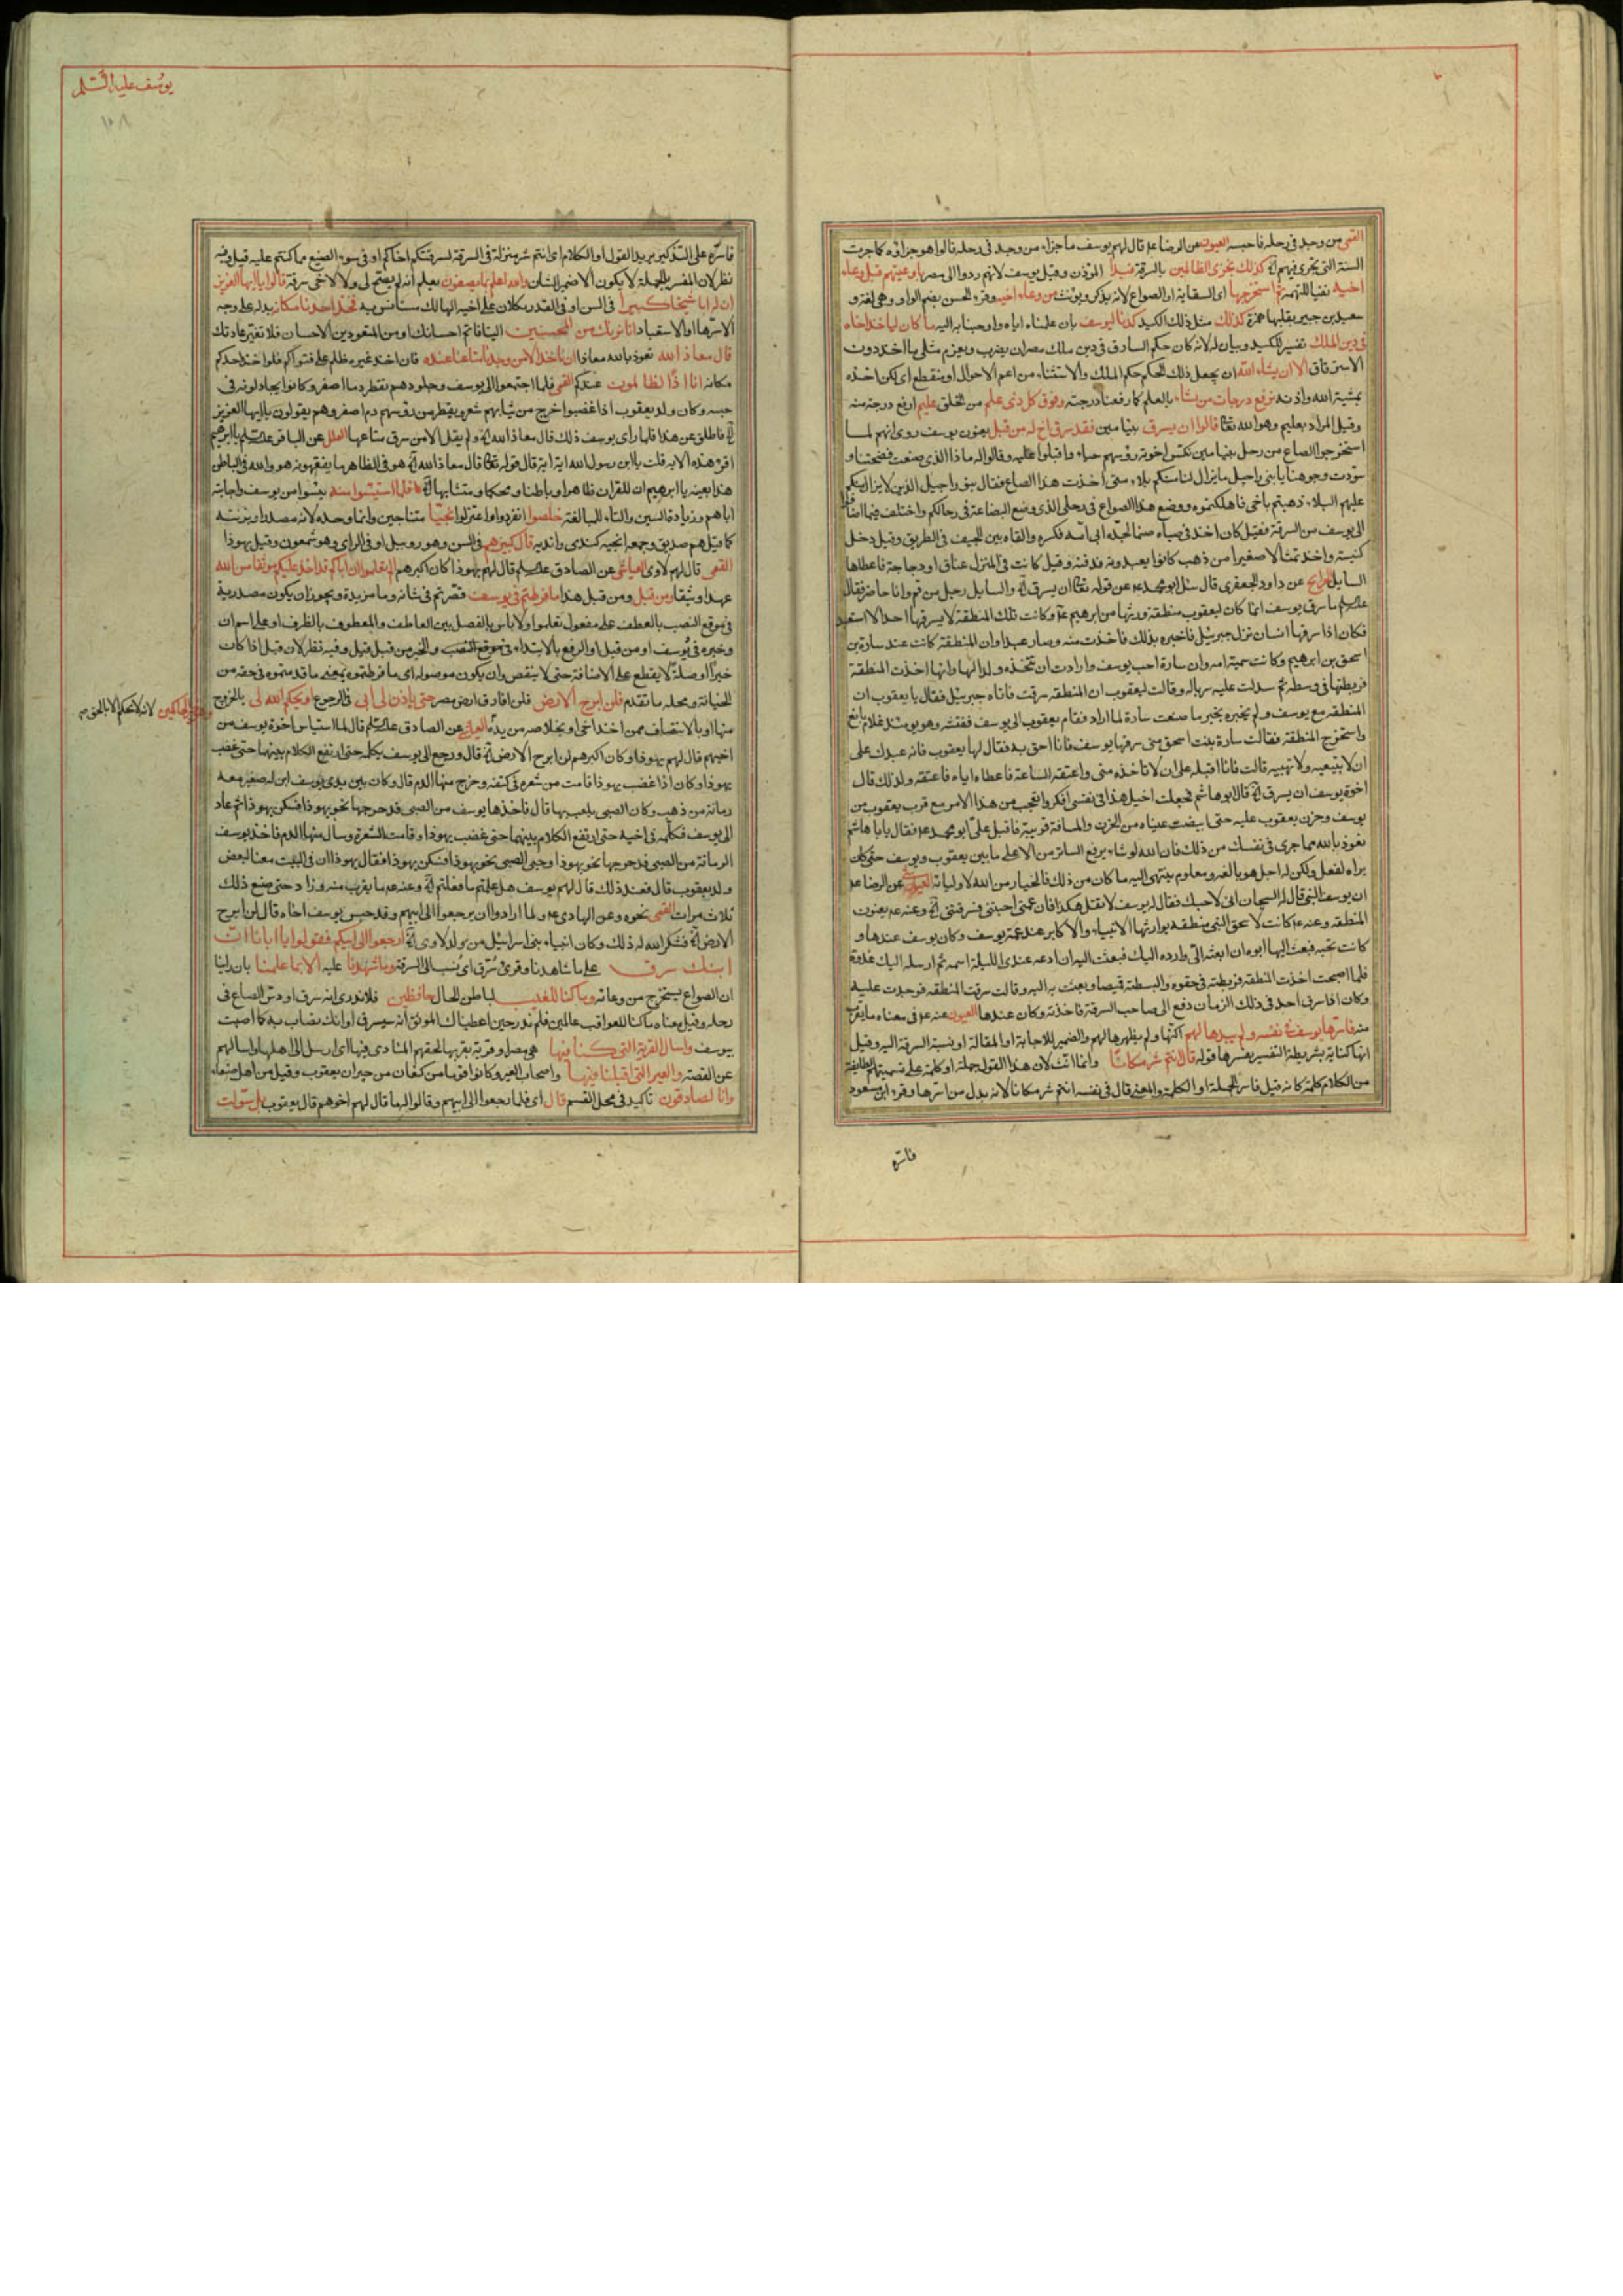 القمي من وجد في رحله فاحبسه العيون عن الرضا ع قال لهم يوسف ما جزاء من وجد في رحله قالوا هو جزاؤه كما جرت
السنة التي تجري فيهم كذلك نجزي الظالمين بالسرقة فبدأ المؤذن وقيل يوسف لانهم ردوا الى مصر باوعيتهم قبل وعاء
اخيه نفيا للتهمة ثم استخرجها اي السقاية او الصواع لانه يذكر ويؤنث من وعاء اخيه وقرء الحسن بضم الواو وهي لغة و
سعيد بن جبير بقلبها همزة كذلك مثل ذلك الكيد كدنا ليوسف بان علمناه اياه واوحينا به اليه ما كان لياخذ اخاه
في دين الملك تفسير للكيد وبيان له لانه كان حكم السارق في دين ملك مصر ان يضرب ويغرم مثلي ما اخذ دون
الاسترقاق الا ان يشاء الله ان يجعل ذلك الحكم حكم الملك والاستثناء من اعم الاحوال او منقطع اي لكن اخذه
بمشية الله واذنه نرفع درجات من نشاء بالعلم كما رفعنا درجته وفوق كل ذي علم من الخلق عليم ارفع درجة منه
وقيل المراد بعليم وهو الله تعا قالوا ان يسرق بنيامين فقد سرق اخ له من قبل يعنون يوسف روي انهم لما
استخرجوا الصاع من رحل بنيامين نكس اخوته رؤسهم حياء واقبلوا عليه وقالوا له ما ذا الذي صنعت فضحتنا و
سودت وجوهنا يا بني راحيل ما يزال لنا منكم بلاء متى اخذت هذا الصاع فقال بنو راحيل الذين لا يزال منكم
عليهم البلاء ذهبتم باخي فاهلكتموه ووضع هذا الصواع في رحلي الذي وضع البضاعة في رحالكم واختلف فيما اضافوا
الى يوسف من السرقة فقيل كان اخذ في صباه صنما لجده ابي امه فكسره والقاه بين الجيف في الطريق وقيل دخل
كنيسة واخذ تمثالا صغيرا من ذهب كانوا يعبدونه فدفنه وقيل كانت في المنزل عناق او دجاجة فاعطاها
السايل عن داود الجعفري قال سئل ابو محمد ع عن قوله تعا ان يسرق والسايل رجل من قم وانا حاضر فقال
ما سرق يوسف انما كان ليعقوب منطقة ورثها من ابرهيم ع وكانت تلك المنطقة لا يسرقها احد الا استعبد
فكان اذا سرقها انسان نزل جبرئيل فاخبره بذلك فاخذت منه وصار عبدا وان المنطقة كانت عند سارة بن
اسحق بن ابرهيم وكانت سمية امه وان سارة احب يوسف وارادت ان تتخذه ولدا لها وانها اخذت المنطقة
فربطتها في وسطه ثم سدلت عليه سرباله وقالت ليعقوب ان المنطقة سرقت فاتاه جبرئيل فقال يا يعقوب ان
المنطقة مع يوسف ولم يخبره بخبر ما صنعت سارة لما اراد فقام يعقوب الى يوسف ففتشه وهو يومئذ غلام يافع
واستخرج المنطقة فقالت سارة بنت اسحق مني سرقها يوسف فانا احق به فقال لها يعقوب فانه عبدك على
ان لا تبيعيه ولا تهبيه قالت فانا اقبله على ان لا تاخذه مني واعتقه الساعة فاعطاه اياه فاعتقه ولذلك قال
اخوة يوسف ان يسرق قال ابو هاشم فجعلت اجيل هذا في نفسي افكر واتعجب من هذا الامر مع قرب يعقوب من
يوسف وحزن يعقوب عليه حتى ابيضت عيناه من الحزن والمسافة قريبة فاقبل علي ابو محمد ع فقال يا ابا هاشم
نعوذ بالله مما جرى في نفسك من ذلك فان الله لو شاء يرفع الساتر من الاعلى ما بين يعقوب ويوسف حتى كان
يراه لفعل ولكن له اجل هو بالغه ومعلوم ينتهي اليه ما كان من ذلك فالخيار من الله لاوليائه عن الرضا ع
ان يوسف النبي قال له السجان اني لاحبك فقال له يوسف لا تقل هكذا فان عمتي احبتني فسرقتني وعنه ع يعنون
المنطقة وعنه ع كانت لاسحق النبي منطقة يوارثها الانبياء والاكابر عند عمة يوسف وكان يوسف عندها و
كانت تحبه فبعث اليها ابوه ان ابعثه الي وارده اليك فبعثت اليه ان ادعه عندي الليلة اشمه ثم ارسله اليك غدوة
فلما اصبحت اخذت المنطقة فربطته في حقوه والبسته قميصا وبعثت به اليه وقالت سرقت المنطقة فوجدت عليه
وكان اذا سرق احد في ذلك الزمان دفع الى صاحب السرقة فاخذته وكان عندها العيون عنه ع في معناه ما يقرب
منه فاسرها يوسف في نفسه ولم يبدها لهم اكنها ولم يظهرها لهم والضمير للاجابة او المقالة او نسبة السرقة اليه وقيل
انها كناية بشريطة التفسير يفسرها قوله قال انتم شر مكانا وانما انث لان هذا القول جملة او كلمة على تسميتهم الطايفة
من الكلام كلمة كانه قيل فاسر الجملة او الكلمة والمعنى قال في نفسه انتم شر مكانا لانه بدل من اسرها وقرء ابن مسعود
فاسره
يوسف عليه السلم
١٥٨
فاسره على التذكير يريد القول او الكلام اي انتم شر منزلة في السرقة لسرقتكم اخاكم او في سوء الصنيع مما كنتم عليه قيل وفيه
نظر لان المفسر بالجملة لا يكون الا ضمير الشان والله اعلم بما تصفون يعلم انه لم يصح لي ولا لاخي سرقة قالوا يا ايها العزيز
ان له ابا شيخا كبيرا في السن او في القدر ثكلان على اخيه الهالك مستانس به فخذ احدنا مكانه بدله على وجه
الاسترهان او الاستعباد انا نريك من المحسنين الينا فاتم احسانك او من المتعودين الاحسان فلا تغير عادتك
قال معاذ الله نعوذ بالله معاذا ان ناخذ الا من وجدنا متاعنا عنده فان اخذ غيره ظلم على فتواكم فلو اخذ احدكم
مكانه انا اذا لظالمون عندكم القمي فلما اجتمعوا الى يوسف وجلودهم تقطر دما اصفر وكانوا يجادلونه في
حبسه وكان ولد يعقوب اذا غضبوا خرج من ثيابهم شعر ويقطر من رؤسهم دم اصفر وهم يقولون يا ايها العزيز
فاطلق عن هذا فلما راى يوسف ذلك قال معاذ الله ولم يقل الا من سرق متاعها العلل عن الباقر يا ابرهيم
اقرء هذه الاية قلت يا ابن رسول الله اية اية قال قوله تعا قال معاذ الله هو في الظاهر ما يفقهونه هو والله في الباطن
هذا بعينه يا ابرهيم ان للقران ظاهرا وباطنا ومحكما ومتشابها فلما استيئسوا منه يئسوا من يوسف واجابته
اياهم وزيادة السين والتاء للمبالغة خلصوا انفردوا واعتزلوا نجيا متناجين وانما وحده لانه مصدر او بزنته
كما قيل هم صديق وجمعه انجية كندي واندية قال كبيرهم في السن وهو روبيل او في الراي وهو شمعون وقيل يهوذا
القمي قال لهم لاوى العياشي عن الصادق قال لهم يهوذا كان اكبرهم الم تعلموا ان اباكم قد اخذ عليكم موثقا من الله
عهدا وثيقا ومن قبل ومن قبل هذا ما فرطتم في يوسف قصرتم في شانه وما مزيدة ويجوز ان يكون مصدرية
في موقع النصب بالعطف على مفعول تعلموا ولا باس بالفصل بين العاطف والمعطوف بالظرف او على اسم ان
وخبره في يوسف او من قبل او الرفع بالابتداء في موقع النصب والخبر من قبل قيل وفيه نظر لان قبل اذا كان
خبرا او صلة لا يقطع على الاضافة حتى لا ينقص وان يكون موصولة اي ما فرطتموه بمعنى ما قدمتموه في حقه من
الخيانة ومحله ما تقدم فلن ابرح الارض فلن افارق ارض مصر حتى ياذن لي ابي في الرجوع او يحكم الله لي بالخروج
وهو خير الحاكمين لانه لا يحكم الا بالحق
منها او بالانتصاف ممن اخذ اخي او بخلاصه من يده عن الصادق قال لما استياس اخوة يوسف من
اخيهم قال لهم يهوذا وكان اكبرهم لن ابرح الارض قال ورجع الى يوسف يكلمه حتى ارتفع الكلام بينهما حتى غضب
يهوذا وكان اذا غضب يهوذا قامت من شعره في كتفه وخرج منها الدم قال وكان بين يدي يوسف ابن له صغير معه
رمانة من ذهب وكان الصبي يلعب بها قال فاخذها يوسف من الصبي فدحرجها نحو يهوذا فسكن يهوذا ثم عاد
الى يوسف فكلمه في اخيه حتى ارتفع الكلام بينهما حتى غضب يهوذا وقامت الشعرة وسال منها الدم فاخذ يوسف
الرمانة من الصبي فدحرجها نحو يهوذا وحبى الصبي نحو يهوذا فسكن يهوذا فقال يهوذا ان في البيت معنا لبعض
ولد يعقوب قال فعند ذلك قال لهم يوسف هل علمتم ما فعلتم وعنه ع ما يقرب منه وزاد حتى صنع ذلك
ثلاث مرات القمي نحوه وعن الهادي ع ولما ارادوا ان يرجعوا الى ابيهم وقد حبس يوسف اخاه قال لن ابرح
الارض فشكر الله له ذلك وكان انبياء بني اسرائيل من ولد لاوى ارجعوا الى ابيكم فقولوا يا ابانا ان
ابنك سرق على ما شاهدنا وقرئ سُرّق اي نُسب الى السرقة وما شهدنا عليه الا بما علمنا بان راينا
ان الصواع يستخرج من وعائه وما كنا للغيب لباطن الحال حافظين فلا ندري انه سرق او دس الصاع في
رحله وقيل معناه ما كنا للعواقب عالمين فلم ندر حين اعطيناك الموثق انه سيسرق او انك تصاب به كما اصبت
بيوسف واسال القرية التي كنا فيها هي مصر او قرية بقربها لحقهم المنادي فيها اي ارسل الى اهلها واسالهم
عن القصة والعير التي اقبلنا فيها واصحاب العير وكانوا قوما من كنعان من جيران يعقوب وقيل من اهل صنعاء
وانا لصادقون تاكيد في محل القسم قال اي فلما رجعوا الى ابيهم وقالوا له ما قال لهم اخوهم قال يعقوب بل سولت